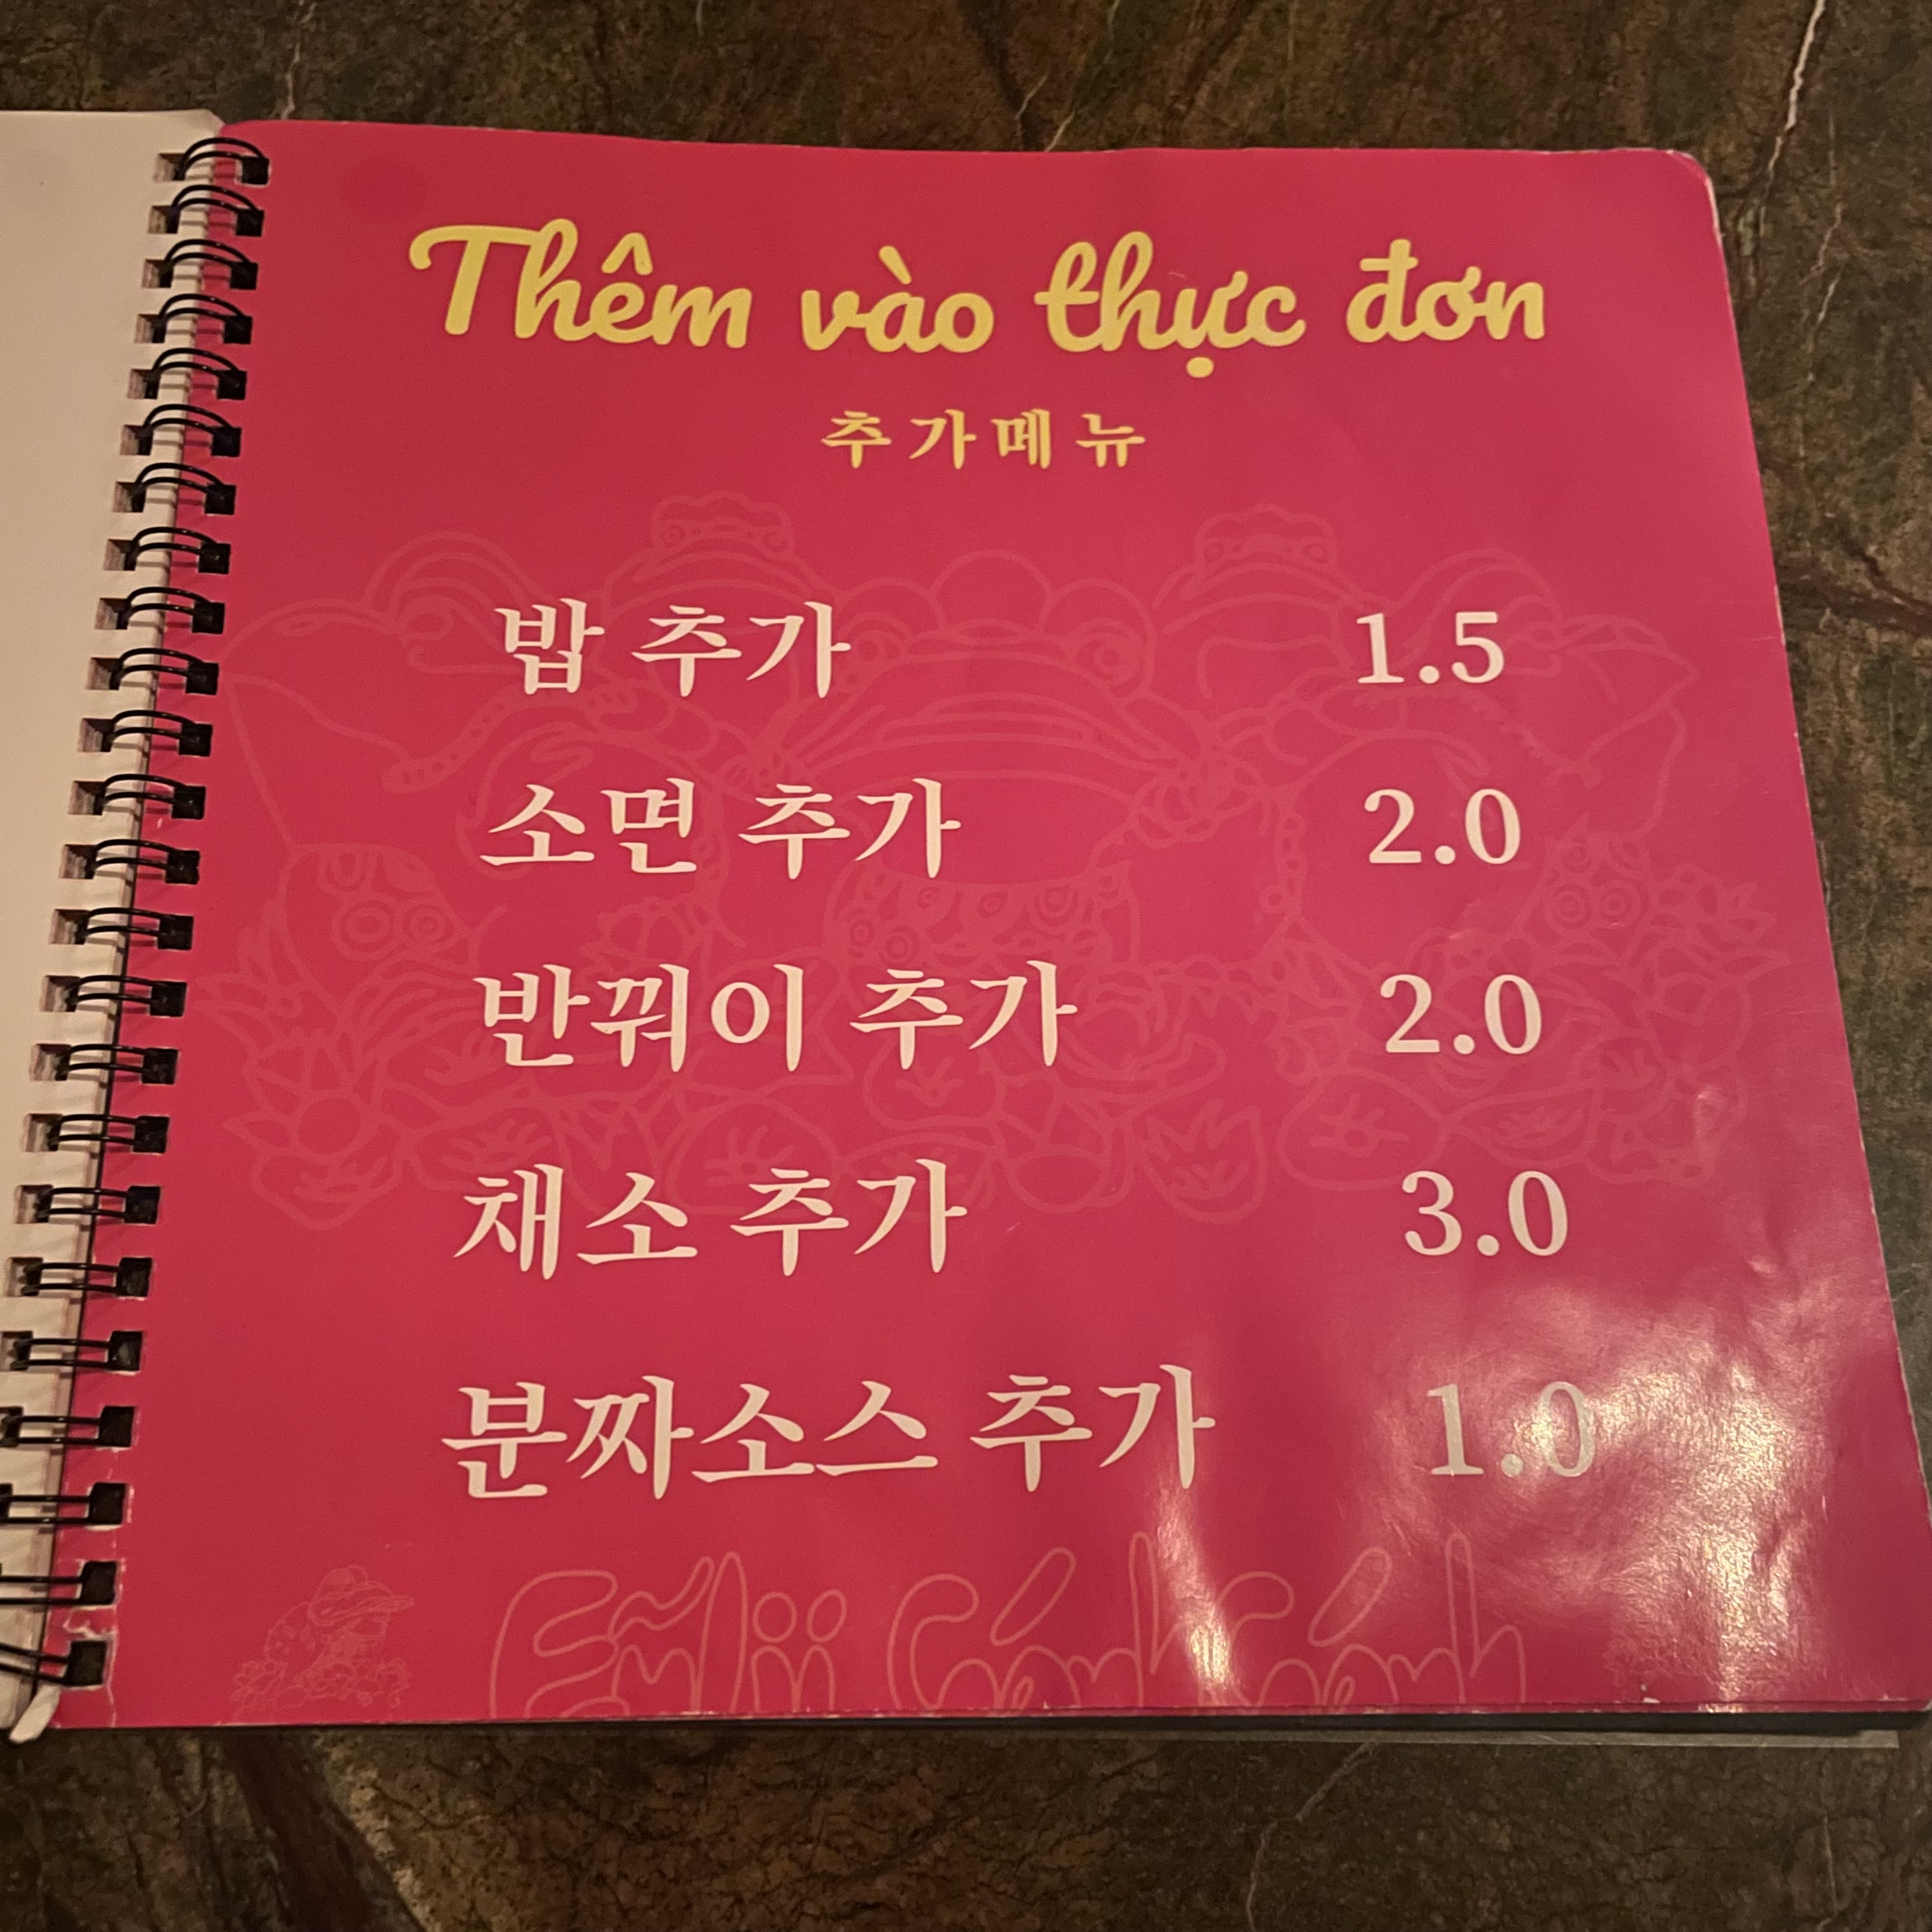 Thêm vào thực đơn
추가메뉴
밥 추가 1.5
소면 추가 2.0
반꿔이 추가 2.0
채소 추가 3.0
분짜소스 추가 1.0